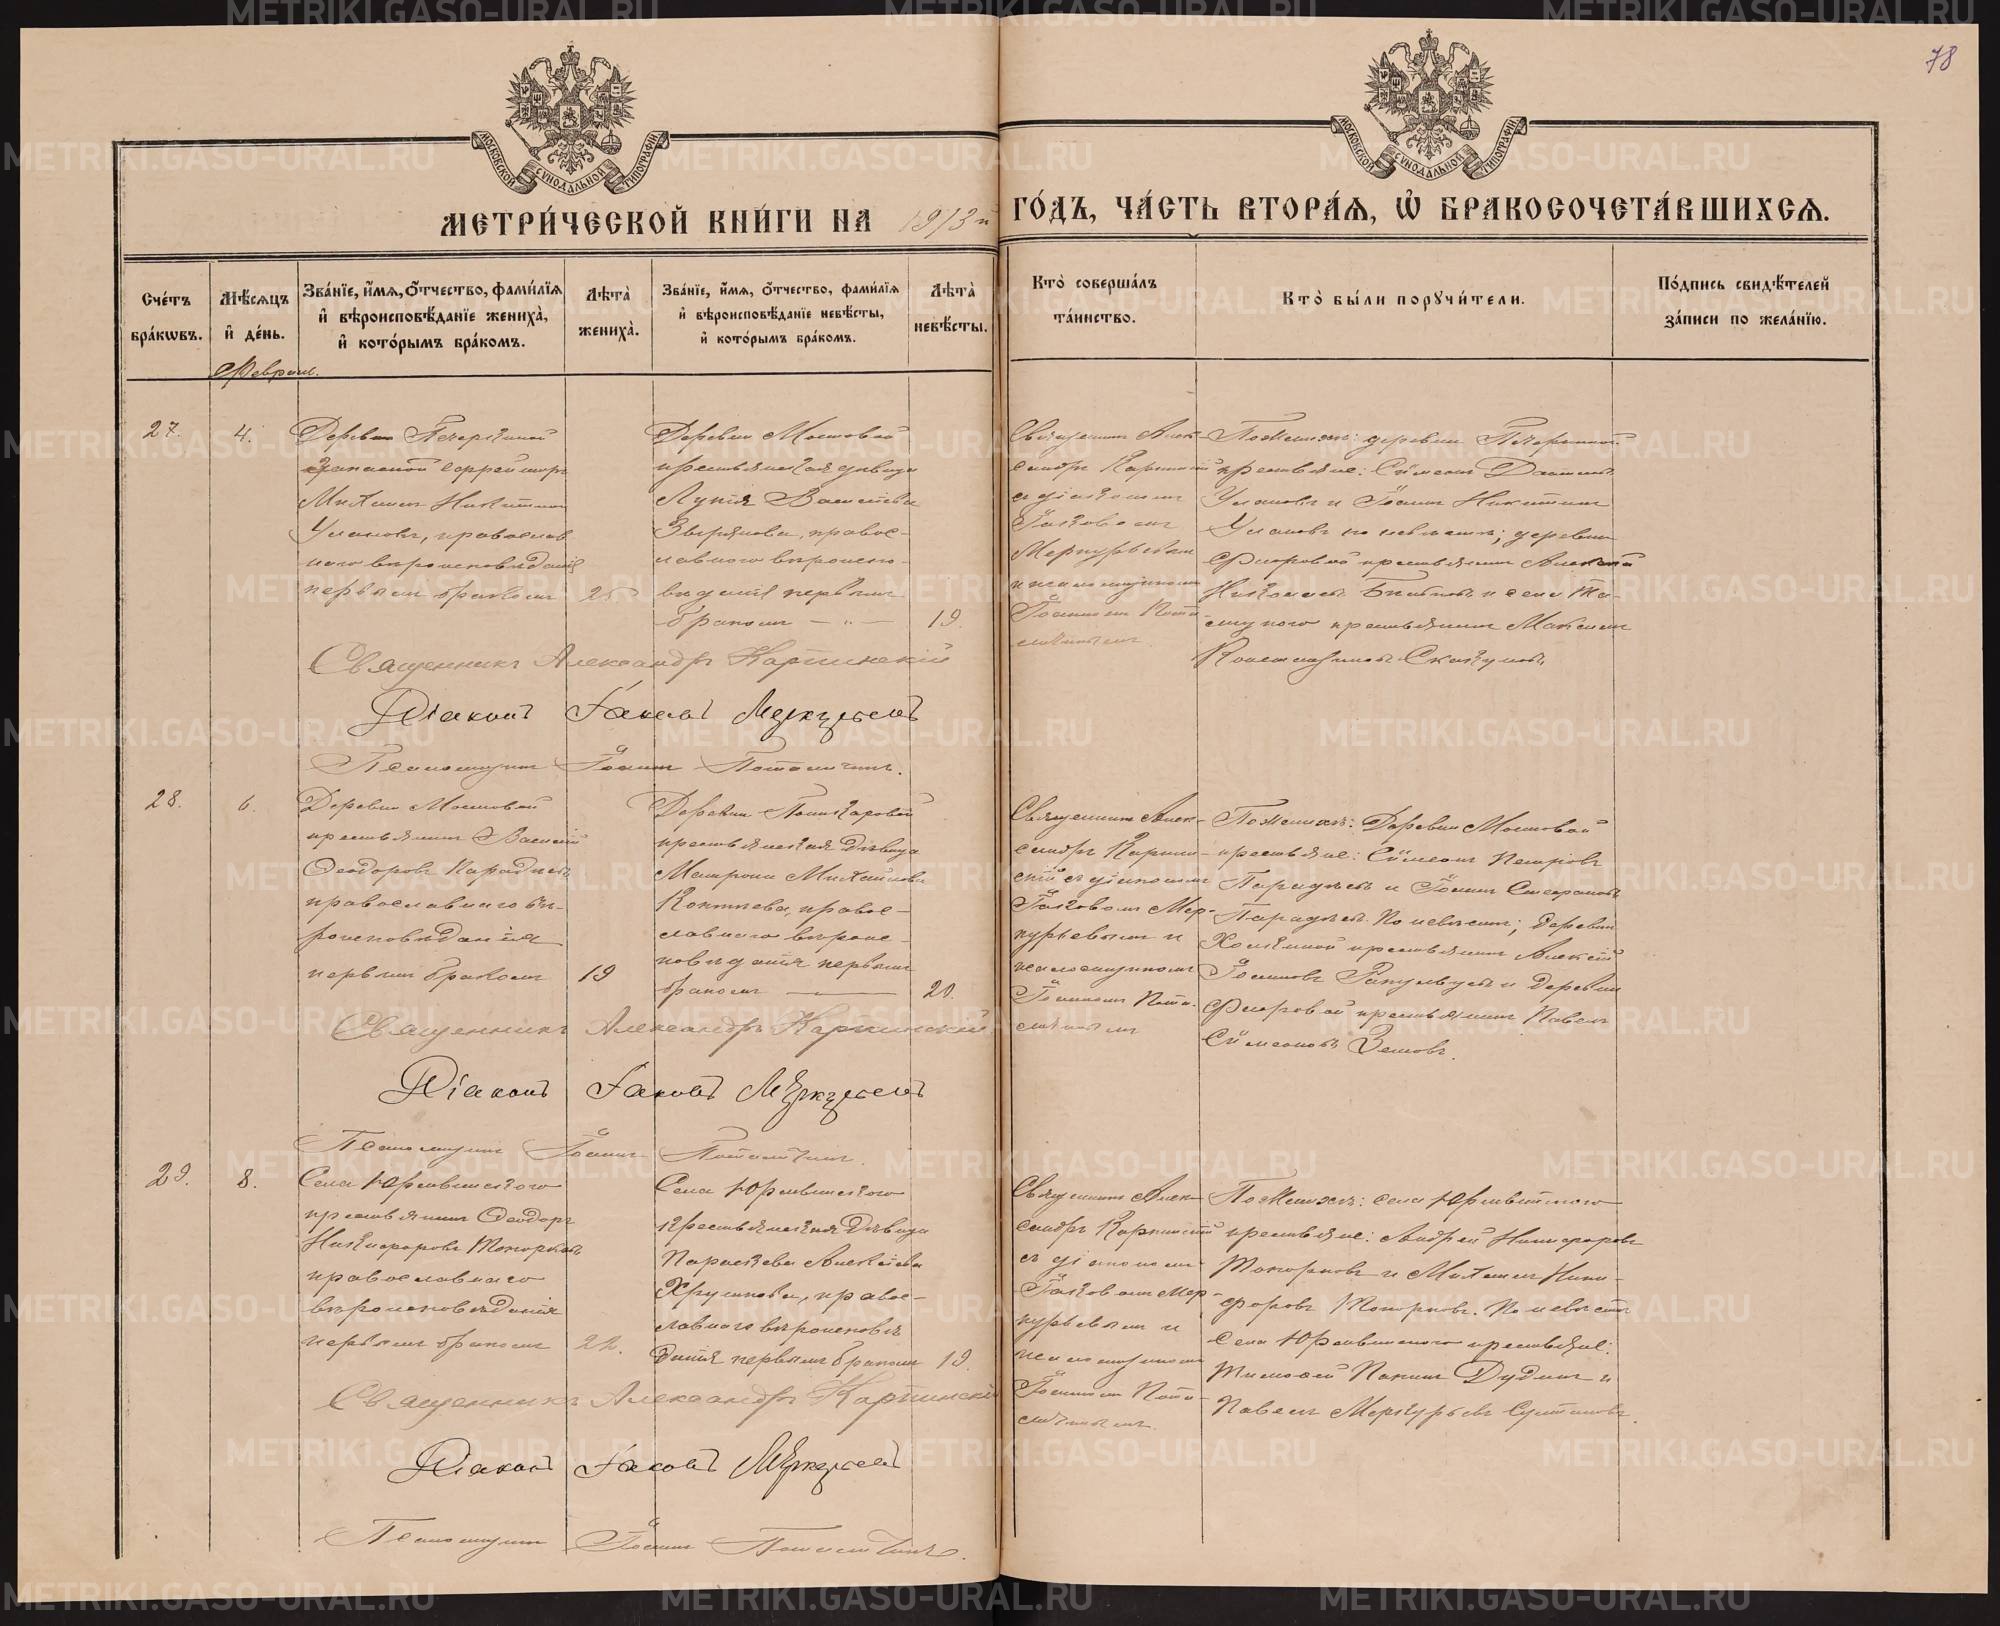 78
МОСКОВСКОЙ СѴНОДАЛЬНОЙ ТИПОГРАФІИ
МОСКОВСКОЙ СѴНОДАЛЬНОЙ ТИПОГРАФІИ
МЕТРИ́ЧЕСКОЙ КНИ́ГИ НА 1913 й ГО́ДЪ, ЧА́СТЬ ВТОРА́Ѧ, Ѡ҆ БРАКОСОЧЕТА́ВШИХСѦ.
Сче́тъ бра́кѡвъ.
Мѣ́сѧцъ и҆ де́нь.
Зва́нїе, и҆́мѧ, ѻ҆́тчество, фами́лїѧ и҆ вѣроисповѣ́данїе жениха̀, и҆ кото́рымъ бра́комъ.
Лѣта̀ жениха̀.
Зва́нїе, и҆́мѧ, ѻ҆́тчество, фами́лїѧ и҆ вѣроисповѣ́данїе невѣ́сты, и҆ кото́рымъ бра́комъ.
Лѣта̀ невѣ́сты.
Кто̀ соверша́лъ та́инство.
Кто̀ бы́ли порꙋчи́тели.
По́дпись свидѣ́телей за́писи по жела́нїю.
Февраль.
27.
4.
Деревни Печеркиной
Запасной ефрейторъ
Михаилъ Никитинъ
Улановъ, православ
наго вѣроисповѣданія
первымъ бракомъ
25
Деревни Мостовой
крестьянская дѣвица
Лукія Васильева
Звѣрянова, правос-
лавнаго вѣроиспо-
вѣданія первымъ
бракомъ — „ —
19.
Священникъ Алек-
сандръ Карпинскій
съ діакономъ
Іаковомъ
Меркурьевым
и псаломщикомъ
Іоанномъ Пота-
По женихѣ: деревни Печеркиной
крестьяне: Сѵмеонъ
Улановъ и Іоаннъ Никитинъ
Улановъ по невѣстѣ; деревни
Фировой крестьянинъ Алексѣй
и села Та-
крестьянинъ Максимъ
Константиновъ
Священникъ Александръ Карпинскій
Діаконъ Іаковъ Меркурьевъ
Псаломщикъ Іоаннъ
28.
6.
Деревни Мостовой
крестьянинъ Василій
Ѳеодоровъ Парадѣевъ
православнаго вѣ-
роисповѣданія
первымъ бракомъ
19
Деревни
крестьянская дѣвица
Матрона Михайлова
Коптяева, правос-
лавнаго вѣроис-
повѣданія первымъ
бракомъ —
20.
Священникъ Алек-
сандръ Карпин-
скій съ діакономъ
Іаковомъ Мер-
курьевымъ и
псаломщикомъ
Іоанномъ Пота-
По женихѣ: Деревни Мостовой
крестьяне: Сѵмеонъ Петровъ
Парадѣевъ и Іоаннъ Стефановъ
Парадѣевъ. По невѣстѣ; деревни
крестьянинъ Алексій
Іоанновъ и деревни
Фировой крестьянинъ Павелъ
Сѵмеоновъ
Священникъ Александръ Карпинскій
Діаконъ Іаковъ Меркурьевъ
Псаломщикъ Іоаннъ
29.
8.
Села Юрмытскаго
крестьянинъ Ѳеодоръ
Никифоровъ Токорковъ
православнаго
вѣроисповѣданія
первымъ бракомъ
22.
Села Юрмытскаго
крестьянская дѣвица
Параскева Алексіева
Хрушкова, правос-
лавнаго вѣроисповѣ
данія первымъ бракомъ
19.
Священникъ Алек-
сандръ Карпинскій
съ діакономъ
Іаковомъ Мер-
курьевымъ и
псаломщикомъ
Іоанномъ Пота-
По женихѣ: села Юрмытскаго
крестьяне: Андрей Никифоровъ
Токорковъ и Михаилъ Ники-
форовъ Токорковъ. По невѣстѣ
села Юрмытскаго крестьяне:
Тимоѳей Дудинъ и
Павелъ Меркурьевъ Султановъ.
Священникъ Александръ Карпинскій
Діаконъ Іаковъ Меркурьевъ
Псаломщикъ Іоаннъ
METRIKI.GASO-URAL.RU